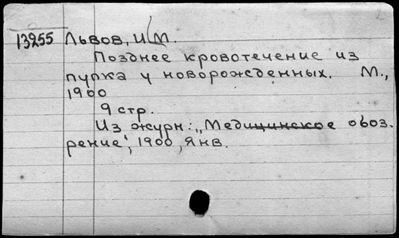 13255 Львов, И М.
Позднее кровотечение из
пупка у новорожденных. М.,
1900
9 стр.
Из журн.: „Медицинское обоз.
рение", 1900, Янв.